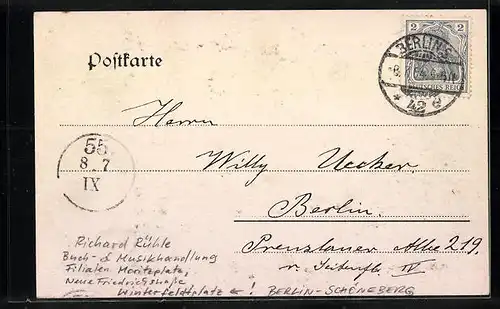 2
BERLIN S
DEUTSCHES REICH
42
Postkarte
Herrn
Willy Uecker.
Berlin.
Prenzlauer Allee 219.
v. Seitenfl. IV
55
8 7
IX
Richard Rühle
Buch- & Musikhandlung
Filialen Moritzplatz,
Neue Friedrichstraße,
Winterfeldtplatz ← ! BERLIN-SCHÖNEBERG